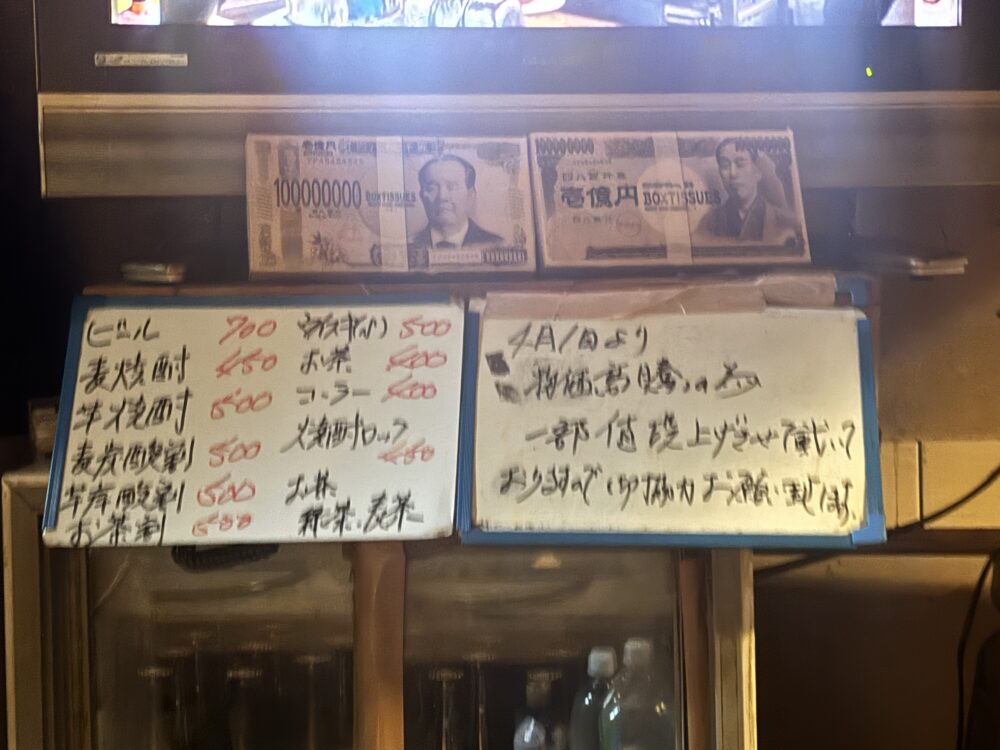 壱億円
100000000
BOXTISSUES
100000000
壱億円
BOXTISSUES
ビール 700
麦焼酎 450
芋焼酎 500
麦炭酸割 500
芋炭酸割 500
お茶割 500
500
お茶 400
コーラー 400
焼酎ロック
450
お茶
緑茶、麦茶
4月1日より
物価高騰の為
一部値段上げさせて頂いて
おりますので御協力お願い致します。